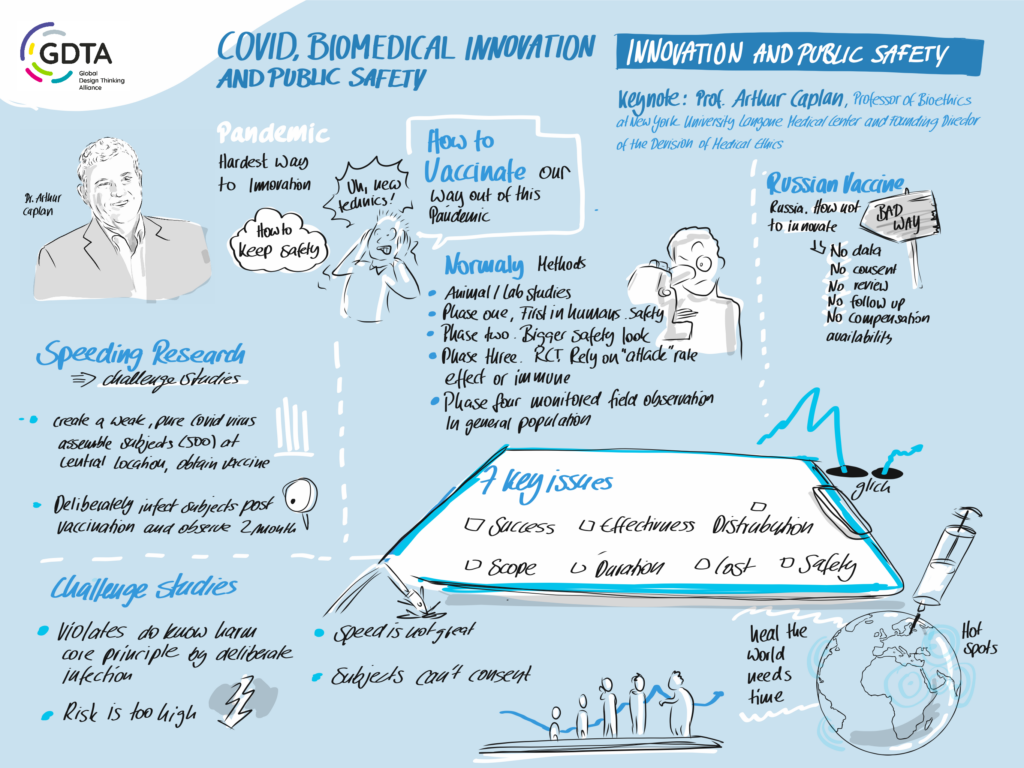 GDTA
Global
Design Thinking
Alliance
COVID, BIOMEDICAL INNOVATION
AND PUBLIC SAFETY
INNOVATION AND PUBLIC SAFETY
Keynote: Prof. Arthur Caplan, Professor of Bioethics
at New York University Langone Medical Center and Founding Director
of the Devision of Medical Ethics
Dr. Arthur
Caplan
Pandemic
Hardest way
to Innovation
How to
keep safety
Uh, new
technics!
How to
Vaccinate our
way out of this
Pandemic
Normaly Methods
Animal / Lab studies
Phase one, First in humans. safety
Phase two. Bigger safety look
Phase three. RCT Rely on "attack" rate
effect or immune
Phase four monitored field observation
In general population
Russian Vaccine
Russia. How not
to innovate
BAD
WAY
No data
No consent
No review
No follow up
No compensation
availability
Speeding Research
⇒ challenge studies
create a weak, pure covid virus
assemble subjects (500) at
central location, obtain vaccine
Deliberately infect subjects post
vaccination and observe 2/month
7 key issues
Success
Effectivness
Distrubution
Scope
Duration
Cost
Safety
glich
Challenge studies
Violates do know harm
core principle by deliberate
infection
Risk is too high
Speed is not great
Subjects can't consent
heal the
world
needs
time
Hot
spots